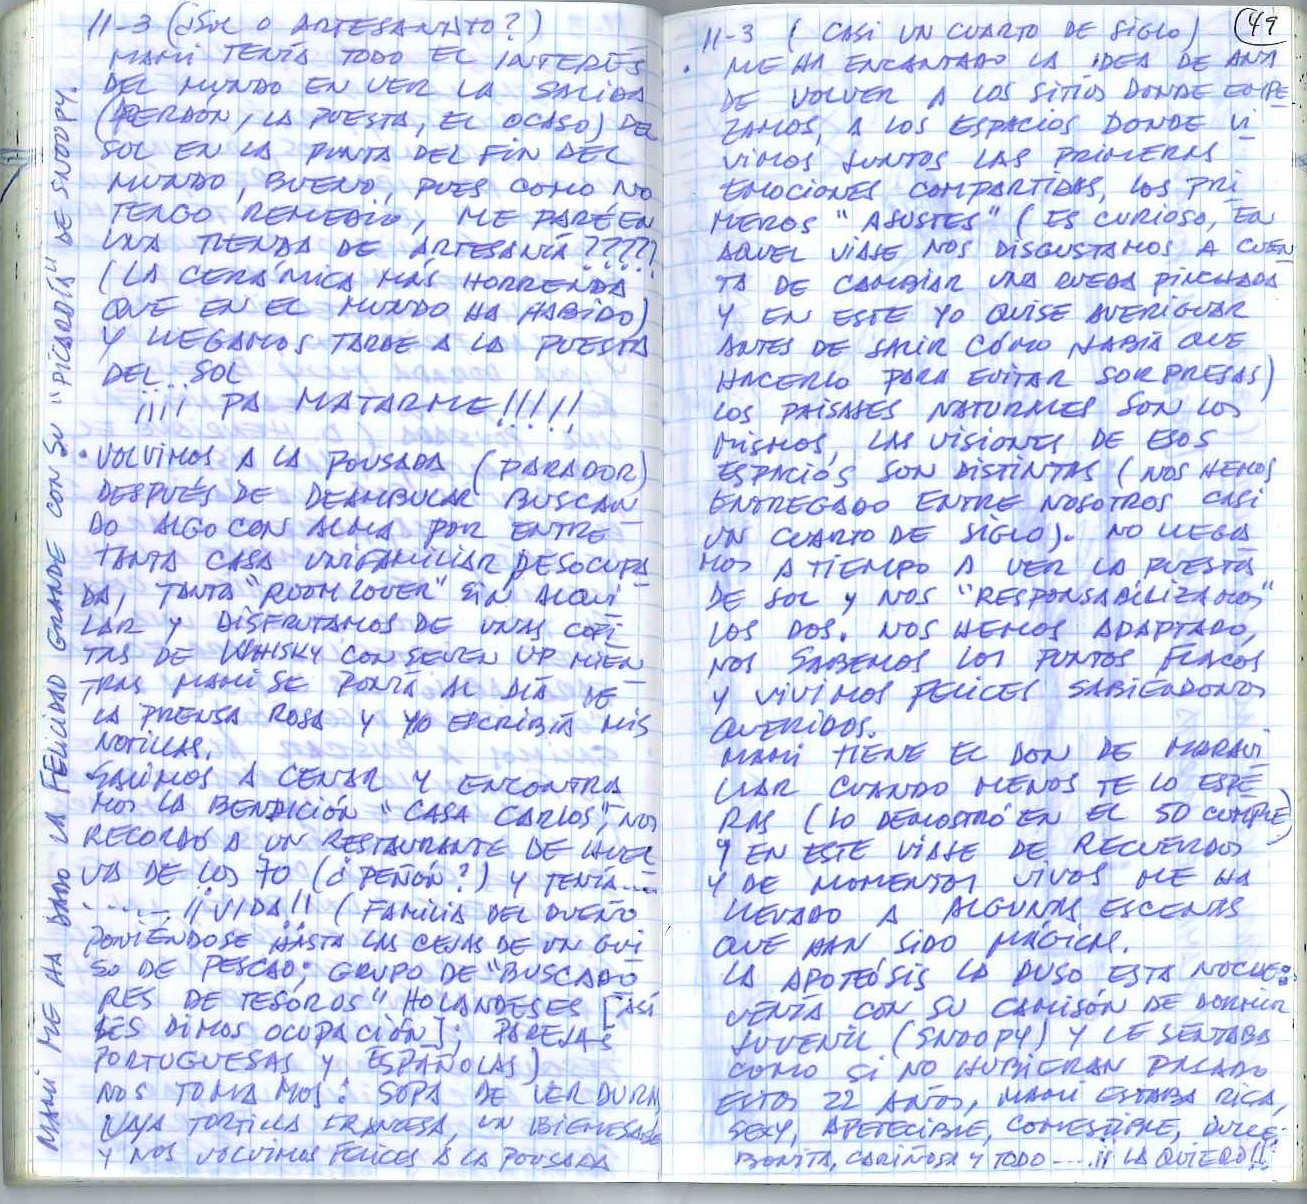 11-3 (¿SOL O ARTESANATO?)
MAMI TENÍA TODO EL INTERÉS
DEL MUNDO EN VER LA SALIDA
(PERDÓN, LA PUESTA, EL OCASO) DEL
SOL EN LA PUNTA DEL FIN DEL
MUNDO, BUENO, PUES COMO NO
TENGO REMEDIO, ME PARÉ EN
UNA TIENDA DE ARTESANÍA ?????
(LA CERÁMICA MÁS HORRENDA
QUE EN EL MUNDO HA HABIDO)
Y LLEGAMOS TARDE A LA PUESTA
DEL SOL
¡¡¡¡ PA MATARME!!!!!
• VOLVIMOS A LA POUSADA (PARADOR)
DESPUÉS DE DEAMBULAR BUSCAN
DO ALGO CON ALMA POR ENTRE
TANTA CASA UNIFAMILIAR DESOCUPA
DA, TANTA "ROOM LOVER" SIN ALQUI
LAR Y DISFRUTAMOS DE UNAS COPI
TAS DE WHISKY CON SEVEN UP MIEN
TRAS MAMI SE PONÍA AL DÍA DE
LA PRENSA ROSA Y YO ESCRIBÍA MIS
NOTILLAS.
SALIMOS A CENAR Y ENCONTRA
MOS LA BENDICIÓN "CASA CARLOS", NOS
RECORDÓ A UN RESTAURANTE DE HUEL
VA DE LOS 70 (¿PEÑÓN?) Y TENÍA....
...... ¡¡VIDA!! (FAMILIA DEL DUEÑO
PONIÉNDOSE HASTA LAS CEJAS DE UN GUI
SO DE PESCAO; GRUPO DE "BUSCADO
RES DE TESOROS" HOLANDESES [ASÍ
LES DIMOS OCUPACIÓN]; PAREJAS
PORTUGUESAS Y ESPAÑOLAS)
NOS TOMAMOS: SOPA DE VERDURA,
UNA TORTILLA FRANCESA, UN BIENMESABE
Y NOS VOLVIMOS FELICES A LA POUSADA
MAMI ME HA DADO LA FELICIDAD GRANDE CON SU "PICARDÍA" DE SNOOPY.
49
11-3 (CASI UN CUARTO DE SIGLO)
• ME HA ENCANTADO LA IDEA DE ANA
DE VOLVER A LOS SITIOS DONDE EMPE
ZAMOS, A LOS ESPACIOS DONDE VI
VIMOS JUNTOS LAS PRIMERAS
EMOCIONES COMPARTIDAS, LOS PRI
MEROS "AJUSTES" (ES CURIOSO, EN
AQUEL VIAJE NOS DISGUSTAMOS A CUEN
TA DE CAMBIAR UNA RUEDA PINCHADA
Y EN ESTE YO QUISE AVERIGUAR
ANTES DE SALIR CÓMO HABÍA QUE
HACERLO PARA EVITAR SORPRESAS)
LOS PAISAJES NATURALES SON LOS
MISMOS, LAS VISIONES DE ESOS
ESPACIOS SON DISTINTAS (NOS HEMOS
ENTREGADO ENTRE NOSOTROS CASI
UN CUARTO DE SIGLO). NO LLEGA
MOS A TIEMPO A VER LA PUESTA
DE SOL Y NOS "RESPONSABILIZAMOS"
LOS DOS. NOS HEMOS ADAPTADO,
NOS SABEMOS LOS PUNTOS FLACOS
Y VIVIMOS FELICES SABIÉNDONOS
QUERIDOS.
MAMI TIENE EL DON DE MARAVI
LLAR CUANDO MENOS TE LO ESPE
RAS (LO DEMOSTRÓ EN EL 50 CUMPLE)
Y EN ESTE VIAJE DE RECUERDOS
Y DE MOMENTOS VIVOS ME HA
LLEVADO A ALGUNAS ESCENAS
QUE HAN SIDO MÁGICAS.
LA APOTEÓSIS LA PUSO ESTA NOCHE:
VENÍA CON SU CAMISÓN DE DORMIR
JUVENIL (SNOOPY) Y LE SENTABA
COMO SI NO HUBIERAN PASADO
ESTOS 22 AÑOS, MAMI ESTABA RICA,
SEXY, APETECIBLE, COMESTIBLE, DULCE,
BONITA, CARIÑOSA Y TODO ....¡¡ LA QUIERO!!